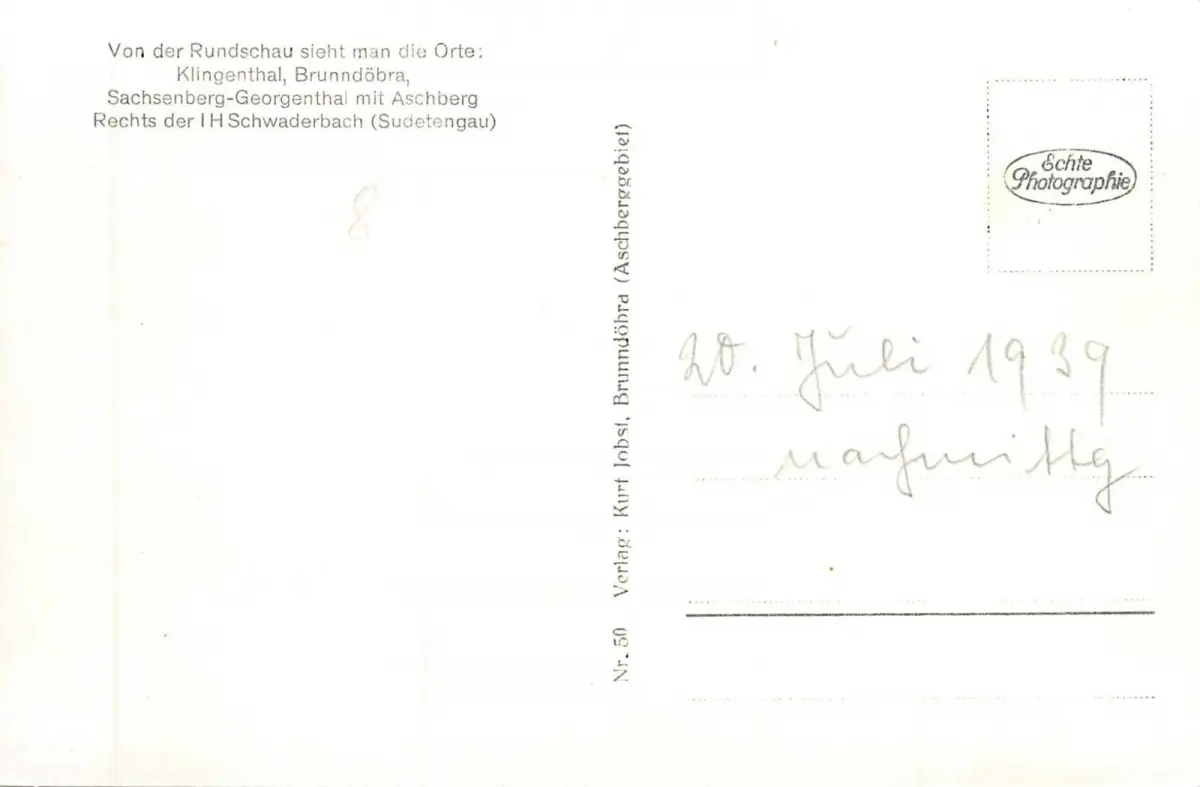 Von der Rundschau sieht man die Orte:
Klingenthal, Brunndöbra,
Sachsenberg-Georgenthal mit Aschberg
Rechts der I H Schwaderbach (Sudetengau)
8
Nr. 50 Verlag: Kurt Jobst, Brunndöbra (Aschberggebiet)
Echte
Photographie
20. Juli 1939
nachmittg